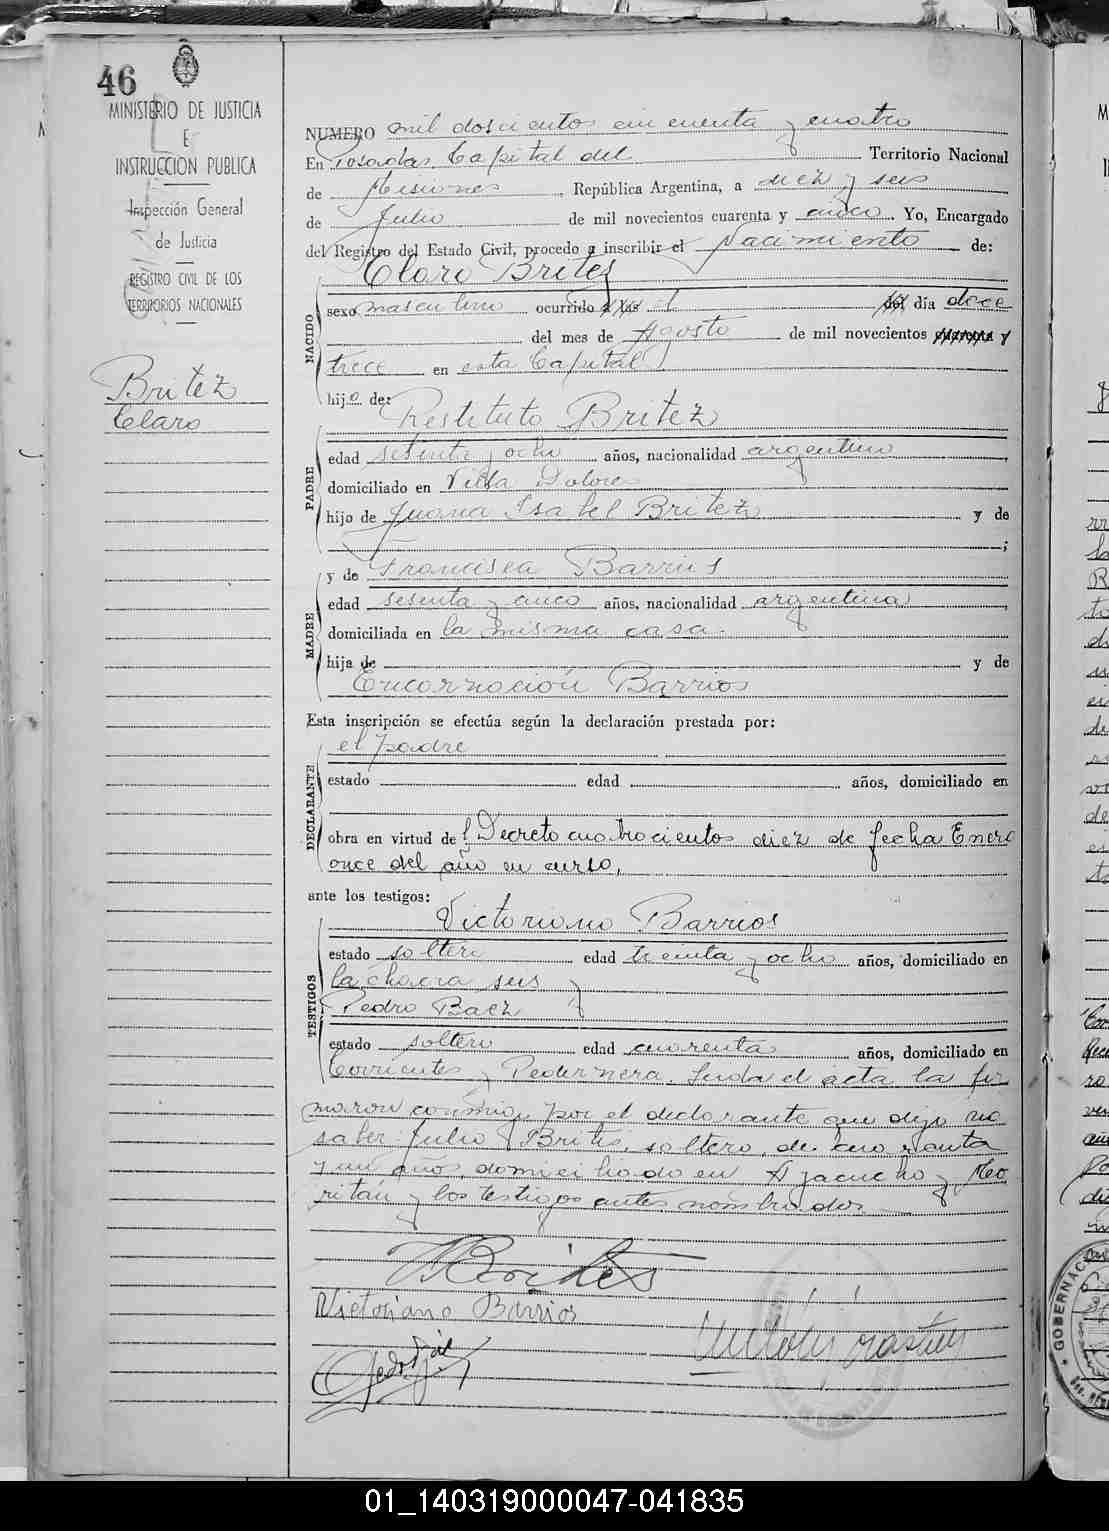 46
MINISTERIO DE JUSTICIA
E
INSTRUCCION PUBLICA
Inspección General
de Justicia
REGISTRO CIVIL DE LOS
TERRITORIOS NACIONALES
Britez
Claro
NUMERO mil doscientos cincuenta y cuatro
En Posadas, Capital del Territorio Nacional
de Misiones, República Argentina, a diez y seis
de Julio de mil novecientos cuarenta y cinco. Yo, Encargado
del Registro del Estado Civil, procedo a inscribir el Nacimiento de:
Claro Britez
NACIDO
sexo masculino ocurrido a las el del día doce
del mes de Agosto de mil novecientos cuarenta y
trece en esta Capital
hijo de:
Restituto Britez
PADRE
edad setenta y ocho años, nacionalidad argentino
domiciliado en Villa Dolores
hijo de Juana Isabel Britez y de
;
y de Francisca Barrios
MADRE
edad sesenta y cinco años, nacionalidad argentina
domiciliada en la misma casa.
hija de y de
Encarnación Barrios
Esta inscripción se efectúa según la declaración prestada por:
el padre
DECLARANTE
estado edad años, domiciliado en
obra en virtud del Decreto cuatrocientos diez de fecha Enero
once del año en curso,
ante los testigos:
Victoriano Barrios
TESTIGOS
estado soltero edad treinta y ocho años, domiciliado en
la chacra seis y
Pedro Baez
estado soltero edad cuarenta años, domiciliado en
Corrientes y Pedernera. Leída el acta la fir
maron conmigo, por el declarante que dijo no
saber Julio Brites, soltero, de cuarenta
y un años, domiciliado en Ayacucho y
y los testigos antes nombrados.
JBrites
Victoriano Barrios
GOBERNAC
01_140319000047-041835